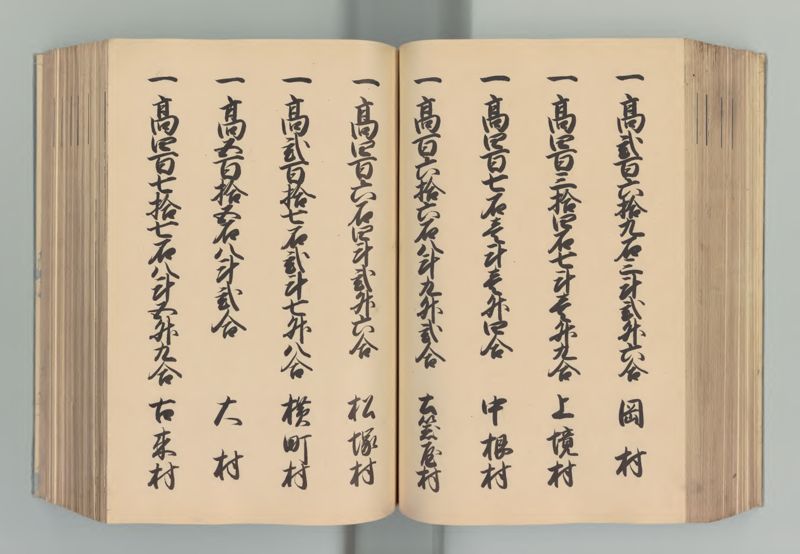 一 高弐百六拾九石三斗弐升六合 岡村
一 高四百三拾四石七斗壱升九合 上境村
一 高四百七石壱斗壱升四合 中根村
一 高百六拾六石八斗九升弐合 土器屋村
一 高四百六石四斗弐升六合 松塚村
一 高弐百拾七石弐斗七升八合 横町村
一 高五百拾五石八斗弐合 大村
一 高四百七拾七石八斗五升九合 古来村